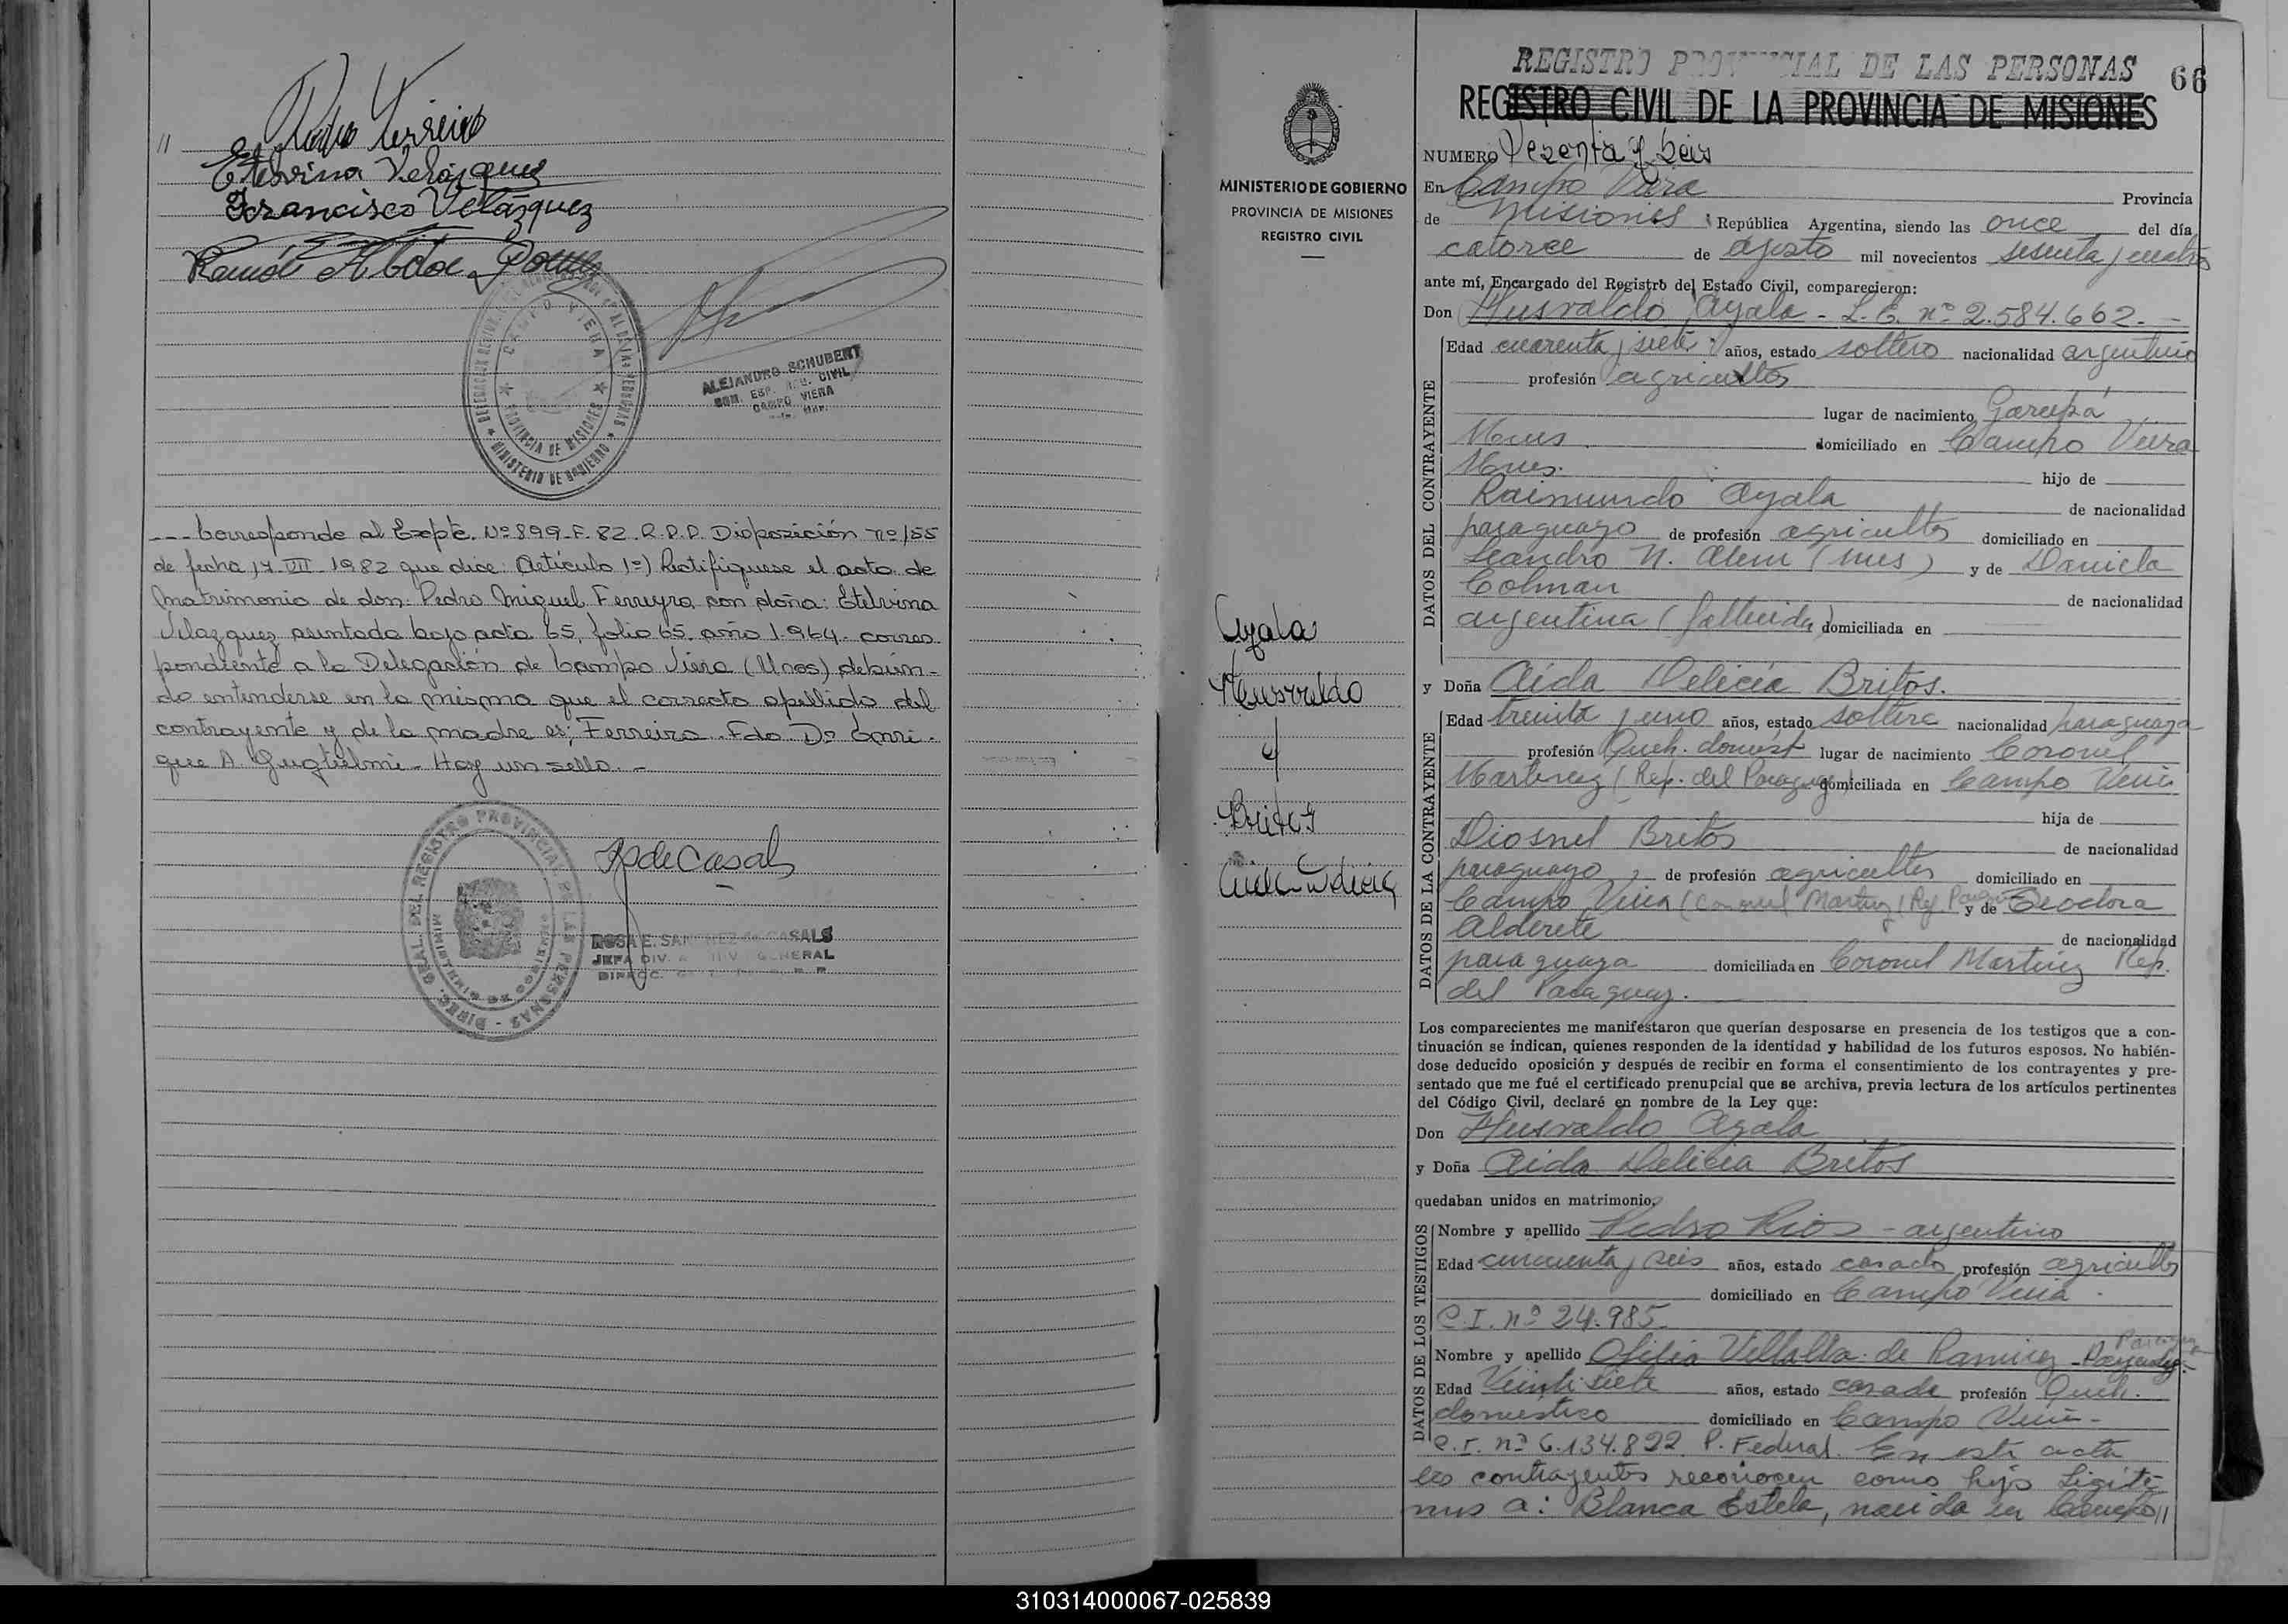 // Pedro Ferreira
Etelvina Velázquez
Francisco Velázquez
Ramón
CAMPO VIERA
PROVINCIA DE MISIONES
MINISTERIO DE GOBIERNO
ALEJANDRO SCHUBERT
CIVIL
CAMPO VIERA
--- Corresponde al Expte. Nº 899-F-82. R.P.P. Disposición nº 155
de fecha 17-VII-1982 que dice: Artículo 1º) Rectifíquese el acta de
Matrimonio de don: Pedro Miguel Ferreyra con doña: Etelvina
Velazquez asentada bajo acta 65, folio 65, año 1.964. corres-
pondiente a la Delegación de Campo Viera (Mnes) debien-
do entenderse en la misma que el correcto apellido del
contrayente y de la madre es; Ferreira. Fdo Dr Enri-
que A. Guglielmi - Hay un sello. -
DIREC. GRAL. DEL REGISTRO PROVINCIAL DE LAS PERSONAS
R de Casals
ROSA E. SANCHEZ de CASALS
JEFA DIV. ARCHIVO GENERAL
REGISTRO PROVINCIAL DE LAS PERSONAS
66
REGISTRO CIVIL DE LA PROVINCIA DE MISIONES
MINISTERIO DE GOBIERNO
PROVINCIA DE MISIONES
REGISTRO CIVIL
Ayala
Husvaldo
y
Britos
Aida Delicia
NUMERO Sesenta y Seis
En Campo Viera Provincia
de Misiones República Argentina, siendo las once del día
catorce de agosto mil novecientos sesenta y cuatro
ante mí, Encargado del Registro del Estado Civil, comparecieron:
Don Husvaldo Ayala - L.E. nº 2.584.662. -
DATOS DEL CONTRAYENTE
Edad cuarenta y siete años, estado soltero nacionalidad argentino
profesión agricultor
lugar de nacimiento Garupá
Mnes domiciliado en Campo Viera
Mnes. hijo de
Raimundo Ayala de nacionalidad
paraguayo de profesión agricultor domiciliado en
Leandro N. Alem (Mnes) y de Daniela
Colman de nacionalidad
argentina (fallecida) domiciliada en
y Doña Aida Delicia Britos.
DATOS DE LA CONTRAYENTE
Edad treinta y uno años, estado soltera nacionalidad paraguaya
profesión Queh. domést lugar de nacimiento Coronel
Martinez (Rep. del Paraguay) domiciliada en Campo Viera
hija de
Diosnel Britos de nacionalidad
paraguayo, de profesión agricultor domiciliado en
Campo Viera (Coronel Martinez Rep. Paraguay) y de Teodora
Alderete de nacionalidad
paraguaya domiciliada en Coronel Martinez Rep.
del Paraguay.
Los comparecientes me manifestaron que querían desposarse en presencia de los testigos que a con-
tinuación se indican, quienes responden de la identidad y habilidad de los futuros esposos. No habién-
dose deducido oposición y después de recibir en forma el consentimiento de los contrayentes y pre-
sentado que me fué el certificado prenupcial que se archiva, previa lectura de los artículos pertinentes
del Código Civil, declaré en nombre de la Ley que:
Don Husvaldo Ayala
y Doña Aida Delicia Britos
quedaban unidos en matrimonio.
DATOS DE LOS TESTIGOS
Nombre y apellido Pedro Rios - argentino
Edad cincuenta y seis años, estado casado profesión agricultor
domiciliado en Campo Viera
C.I. nº 24.985.
Nombre y apellido Ofijia Villalba de Ramirez - Paraguaya
Edad Veintisiete años, estado casada profesión Queh.
domestico domiciliado en Campo Viera -
C.I. nº 6.134.822 P. Federal. En este acta
los contrayentes reconocen como hijo Legiti
mos a: Blanca Estela, nacida en Campo //
310314000067-025839